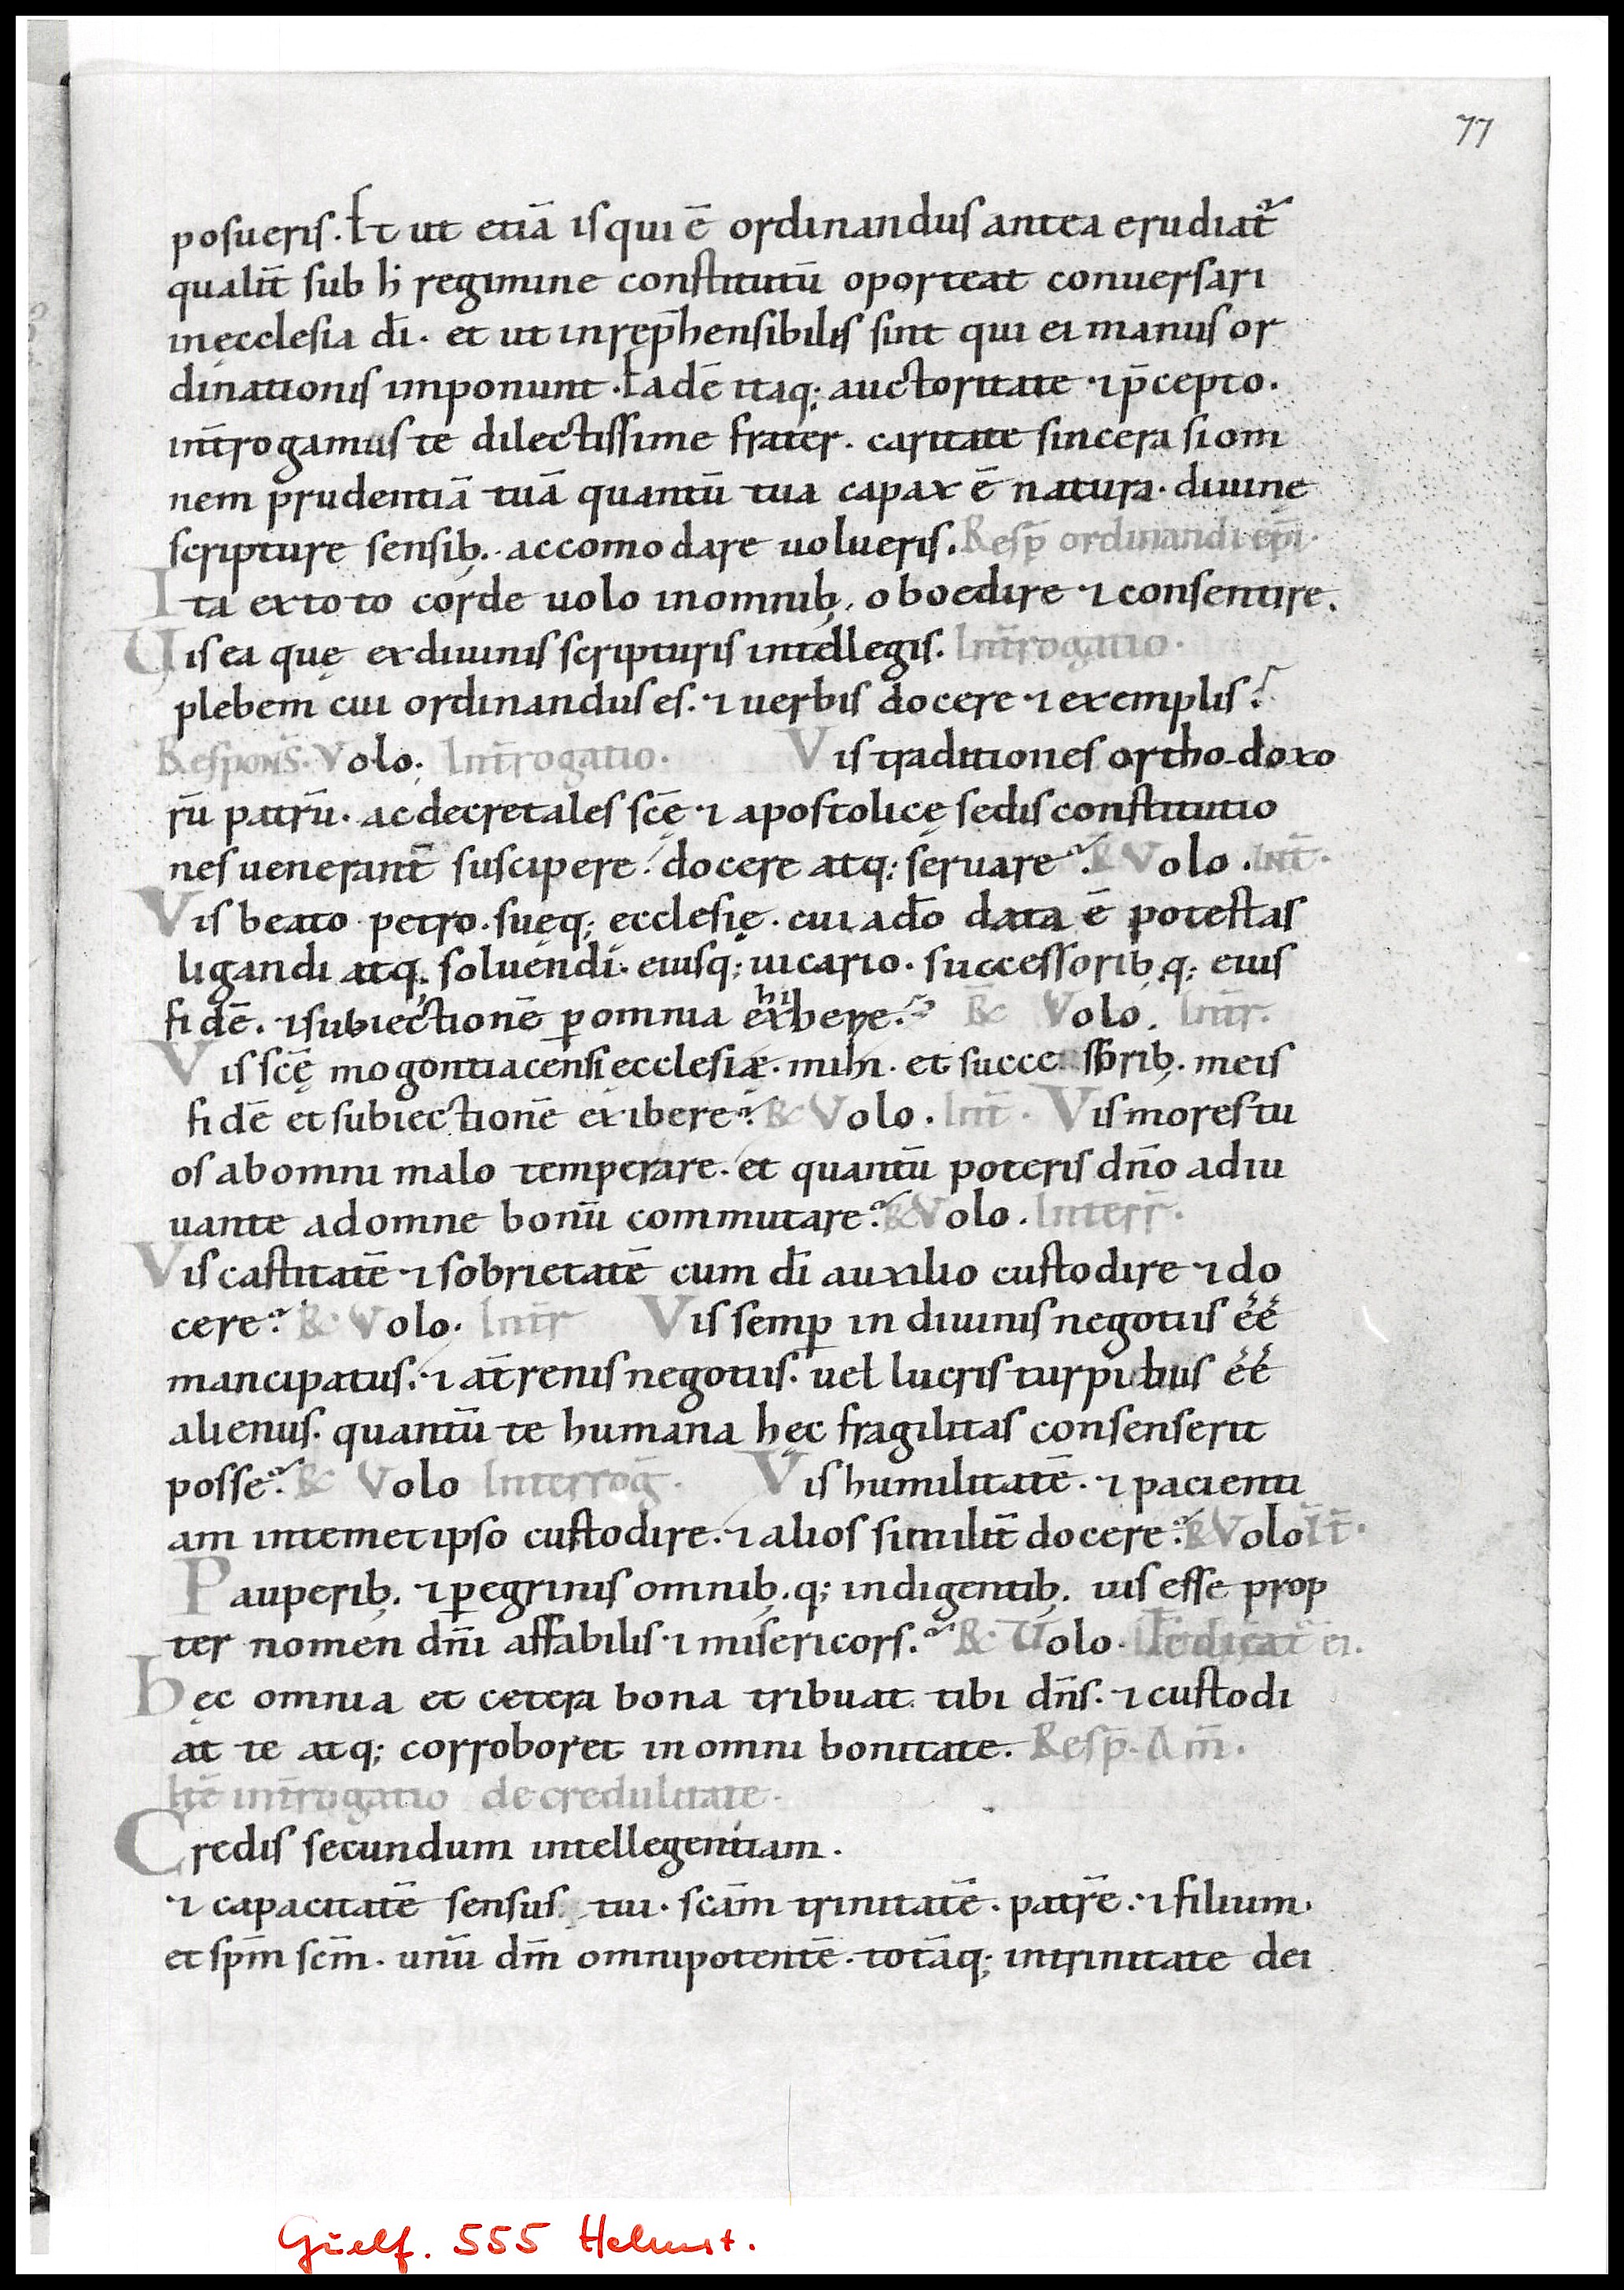 77
posueris. Et ut etiā is qui ē ordinandus antea erudiat᷑
qualit̄ sub h̄ regimine constitutū oporteat conuersari
in ęcclesia dī. et ut inrep̄hensibiles sint qui ei manus or
dinationis imponunt. Eadē itaq; auctoritate ⁊ p̄cepto.
int̄rogamus te dilectissime frater. caritate sincera si om
nem prudentiā tuā quantū tua capax ē natura. diuinę
scripturę sensib; accomodare uolueris. Resp̄ ordinandi ep̄i.
Ita ex toto corde uolo in omnib; oboedire ⁊ consentire.
Uis ea quę ex diuinis scripturis intellegis. Int̄rogatio.
plebem cui ordinandus es. ⁊ uerbis docere ⁊ exemplis?
Respons̄. Volo. Int̄rogatio. Vis traditiones orthodoxo
rū patrū. ac decretales scę̄ ⁊ apostolicę sedis constitutio
nes uenerant̄ suscipere. docere atq; seruare? R̄ Volo. Int̄.
Vis beato petro. suęq; ecclesię. cui a dō data ē potestas
ligandi atq; soluendi. eiusq; uicario. successorib;q; eius
fidē. ⁊ subiectionē ꝑ omnia exhibere? R̄ Volo. Int̄r.
Vis scę̄ mogontiacensi ecclesiæ. mihi. et successorib; meis
fidē et subiectionē exibere? R̄ Volo. Int̄. Vis mores tu
os ab omni malo temperare. et quantū poteris dn̄o adiu
uante ad omne bonū commutare? R̄ Volo. Interr̄.
Vis castitatē ⁊ sobrietatē cum dī auxilio custodire ⁊ do
cere? R̄ Volo. Int̄r Vis semꝑ in diuinis negotiis éé
mancipatus. ⁊ a t̄renis negotiis. uel lucris turpibus éé
alienus. quantū te humana hęc fragilitas consenserit
posse? R̄ Volo Interroḡ. Vis humilitatē. ⁊ pacienti
am in temet ipso custodire. ⁊ alios similit̄ docere? R̄ Volo Īt̄.
Pauperib; ⁊ ꝑegrinis omnib;q; indigentib; uis esse prop
ter nomen dn̄i affabilis. ⁊ misericors? R̄. Uolo. Tē dicat᷑ ei.
hęc omnia et cetera bona tribuat tibi dn̄s. ⁊ custodi
at te atq; corroboret in omni bonitate. Resp̄. Am̄.
Itē int̄rogatio de credulitate.
Credis secundum intellegentiam.
⁊ capacitatē sensus tui. scām trinitatē. patrē. ⁊ filium.
et sp̄m scm̄. unū dm̄ omnipotentē. totāq; in trinitate dei
Guelf. 555 Helmst.